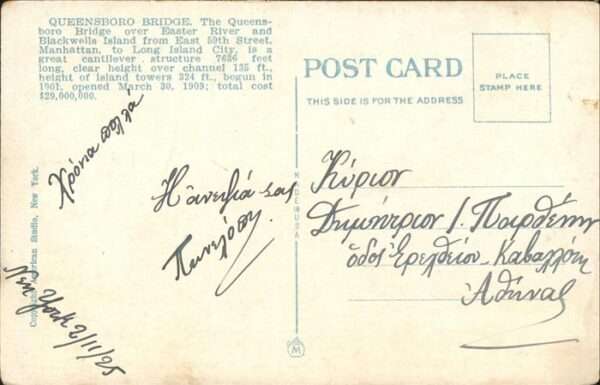 QUEENSBORO BRIDGE. The Queens-
boro Bridge over Easter River and
Blackwells Island from East 59th Street,
Manhattan, to Long Island City, is a
great cantilever structure 7636 feet
long, clear height over channel 135 ft.,
height of island towers 324 ft., begun in
1901, opened March 30, 1909; total cost
$20,000,000.
POST CARD
THIS SIDE IS FOR THE ADDRESS
PLACE
STAMP HERE
Χρόνια πολλά
Η ἀνεψιά σας
Πηνελόπη
New York 2/11/25
Copyright American Studio, New York.
MADE IN USA
Κύριον
Δημήτριον Ι. Παρθένην
ὁδος Ερεχθείου
Αθήνας
M